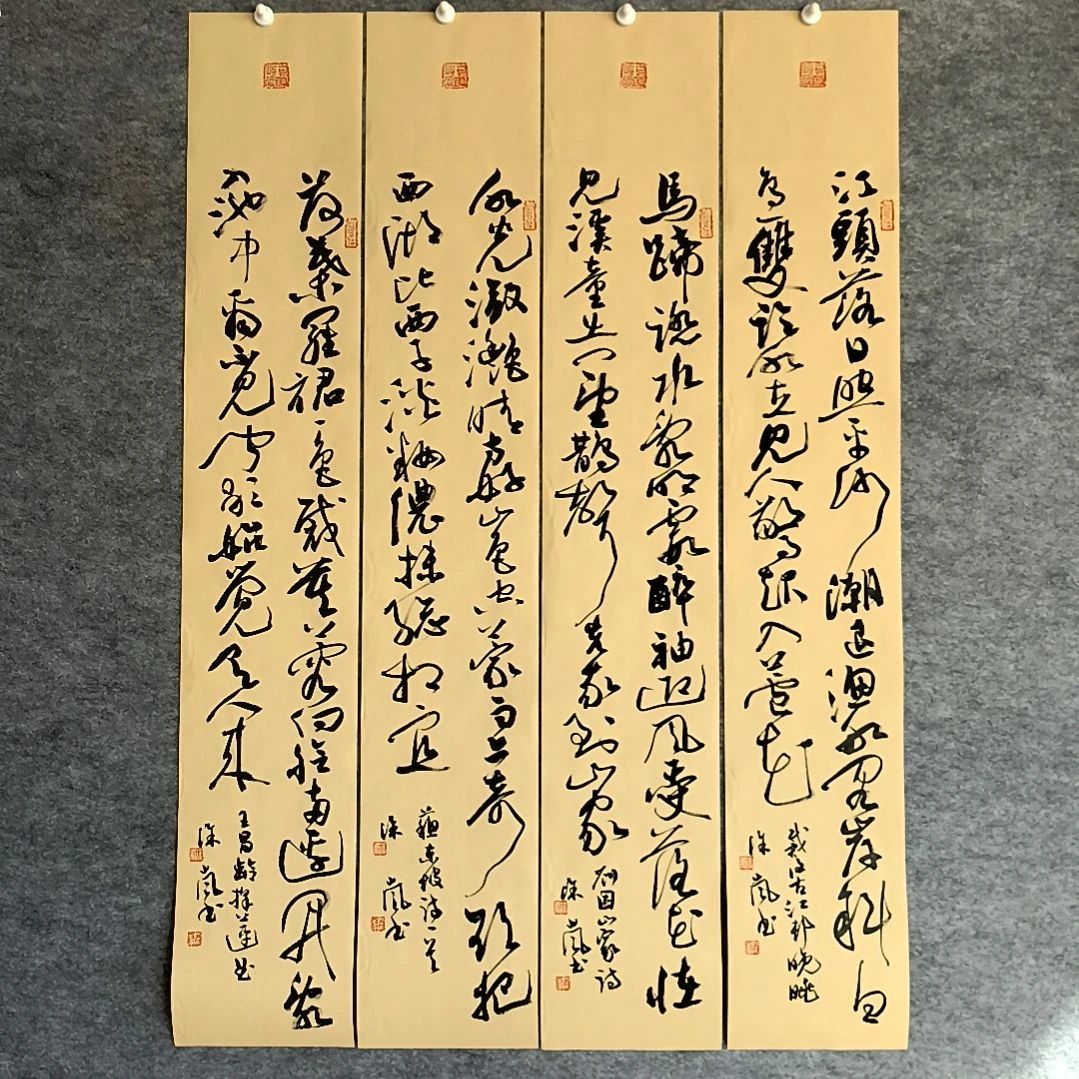 江頭落日照平沙潮退漁船閣岸斜白
鳥一雙臨水立見人驚起入蘆花
戴復古江村晚眺
徐嵐書
馬蹄踏水亂明霞醉袖迎風受落花怪
見溪童出門望鵲聲先我到山家
劉因山家詩
徐嵐書
水光瀲灩晴方好山色空蒙雨亦奇欲把
西湖比西子淡妝濃抹總相宜
蘇東坡詩一首
徐嵐書
荷葉羅裙一色裁芙蓉向臉兩邊開亂
入池中看不見聞歌始覺有人來
王昌齡採蓮曲
徐嵐書